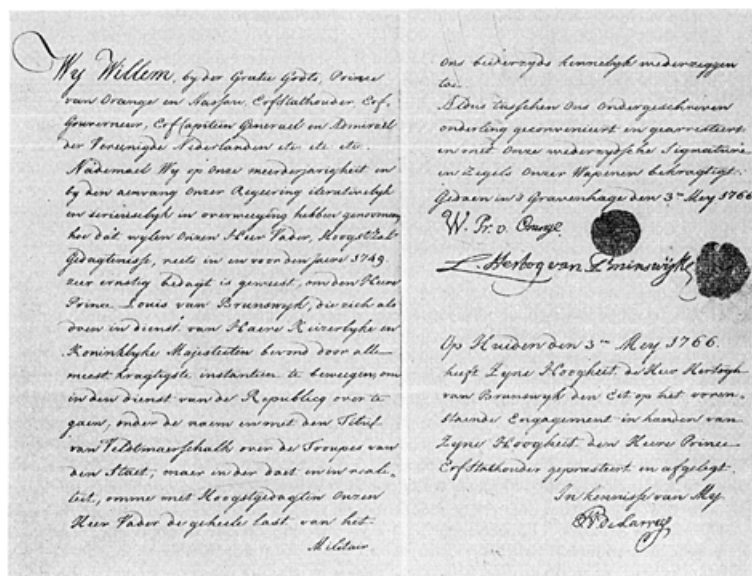 Wy Willem, by der Gratie Godts, Prince
van Orange en Nassau, Erfstathouder, Erf-
Gouverneur, Erfcapitein Generael en Admirael
der Vereenigde Nederlanden etc. etc. etc.
Nademael Wy op onse meerderjarigheit en
by den aenvang Onzer Regeering iterativelyk
en serieusselyk in overweeging hebben genoomen,
hoe dat wylen Onzen Heer Vader, Hoogstzal:
Gedagtenisse, reets in en voor den Jaere 1749.
zeer ernstig bedagt is geweest, om den Heere
Prince Louis van Brunswyk, die zich als
doen in dienst van Haere Keizerlyke en
Koninklyke Majesteiten bevond door alle
meest kragtigste instantien te beweegen, om
in den dienst van de Republicq over te
gaen, onder de naem en met den Titul
van Veldtmaerschalk over de Troupes van
den Staet, maer in der daet en in reali-
teit, omme met Hoogstgedagten Onzen
Heer Vader de geheele last van het
Militair
Ons beiderzyds kennelyk wederzeggen
toe.
Aldus tusschen Ons Ondergeschreven
onderling geconvenieert en gearresteert
en met Onze wederzydsche Signature
en Zegels Onzer Wapenen bekragtigt.
Gedaen in 's Gravenhage den 3en Mey 1766
W. Pr. v. Orange
L. Hertog van Brunswyk
Op Huiden den 3en Mey 1766.
heeft Zyne Hoogheit de Heer Hertogh
van Brunswyk den Eet op het voren-
staende Engagement in handen van
Zyne Hoogheit den Heere Prince
Erfstathouder gepraesteert en afgelegt.
In kennisse van My
de Larrey